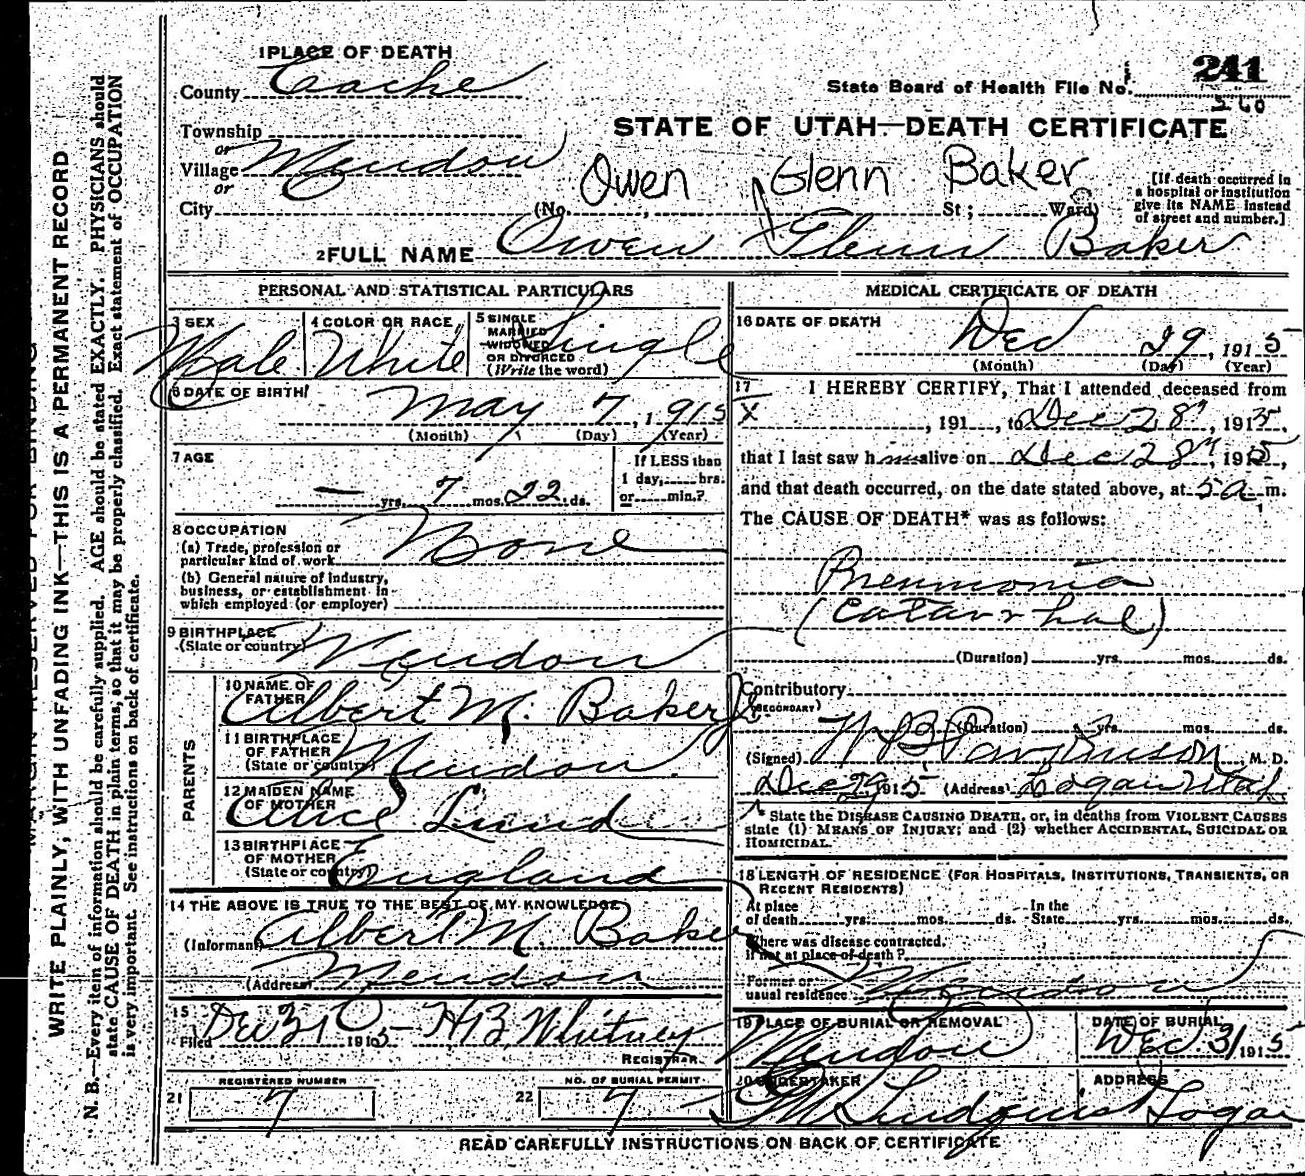 1 PLACE OF DEATH
County Cache
241
State Board of Health File No. 360
STATE OF UTAH—DEATH CERTIFICATE
Township
or
Village Mendon
or
Owen Glenn Baker
City (No. , St ; Ward)
[If death occurred in
a hospital or institution
give its NAME instead
of street and number.]
2 FULL NAME Owen Glenn Baker
PERSONAL AND STATISTICAL PARTICULARS
3 SEX Male
4 COLOR OR RACE White
5 SINGLE
MARRIED
WIDOWED
OR DIVORCED
(Write the word)
Single
6 DATE OF BIRTH
May 7, 1915
(Month) (Day) (Year)
7 AGE
— yrs. 7 mos. 22 ds.
If LESS than
1 day, hrs.
or min.?
8 OCCUPATION
(a) Trade, profession or
particular kind of work None
(b) General nature of industry,
business, or establishment in
which employed (or employer)
9 BIRTHPLACE
(State or country) Mendon
PARENTS
10 NAME OF
FATHER Albert M. Baker
11 BIRTHPLACE
OF FATHER
(State or country) Mendon
12 MAIDEN NAME
OF MOTHER Alice
13 BIRTHPLACE
OF MOTHER
(State or country) England
14 THE ABOVE IS TRUE TO THE BEST OF MY KNOWLEDGE
(Informant) Albert M. Baker
(Address) Mendon
15
Filed Dec 31 1915 H B Whitney
REGISTRAR.
REGISTERED NUMBER
21 7
NO. OF BURIAL PERMIT
22 7
MEDICAL CERTIFICATE OF DEATH
16 DATE OF DEATH
Dec 29, 1915
(Month) (Day) (Year)
17 I HEREBY CERTIFY, That I attended deceased from
X , 191 , to Dec 28", 1915,
that I last saw him alive on Dec 28", 1915,
and that death occurred, on the date stated above, at 5 a m.
The CAUSE OF DEATH* was as follows:
Pneumonia
(Catarrhal)
(Duration) yrs. mos. ds.
Contributory
(SECONDARY)
(Duration) yrs. mos. ds.
(Signed) M. D.
Dec 29 1915 (Address) Logan Utah
* State the DISEASE CAUSING DEATH, or, in deaths from VIOLENT CAUSES
state (1) MEANS OF INJURY; and (2) whether ACCIDENTAL, SUICIDAL OR
HOMICIDAL.
18 LENGTH OF RESIDENCE (FOR HOSPITALS, INSTITUTIONS, TRANSIENTS, OR
RECENT RESIDENTS)
At place
of death yrs. mos. ds.
In the
State yrs. mos. ds.
Where was disease contracted,
if not at place of death?
Former or
usual residence Mendon
19 PLACE OF BURIAL OR REMOVAL
Mendon
DATE OF BURIAL
Dec 31 1915
20 UNDERTAKER
Lindquist
ADDRESS
Logan
READ CAREFULLY INSTRUCTIONS ON BACK OF CERTIFICATE
WRITE PLAINLY, WITH UNFADING INK—THIS IS A PERMANENT RECORD
N. B.—Every item of information should be carefully supplied. AGE should be stated EXACTLY. PHYSICIANS should
state CAUSE OF DEATH in plain terms, so that it may be properly classified. Exact statement of OCCUPATION
is very important. See instructions on back of certificate.